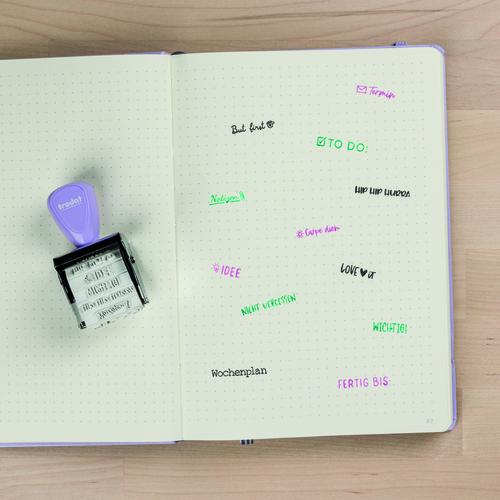 Termin
But first
TO DO:
HIP HIP HURRA
Notizen
Carpe diem
IDEE
LOVE it
NICHT VERGESSEN
WICHTIG!
Wochenplan
FERTIG BIS:
trodat